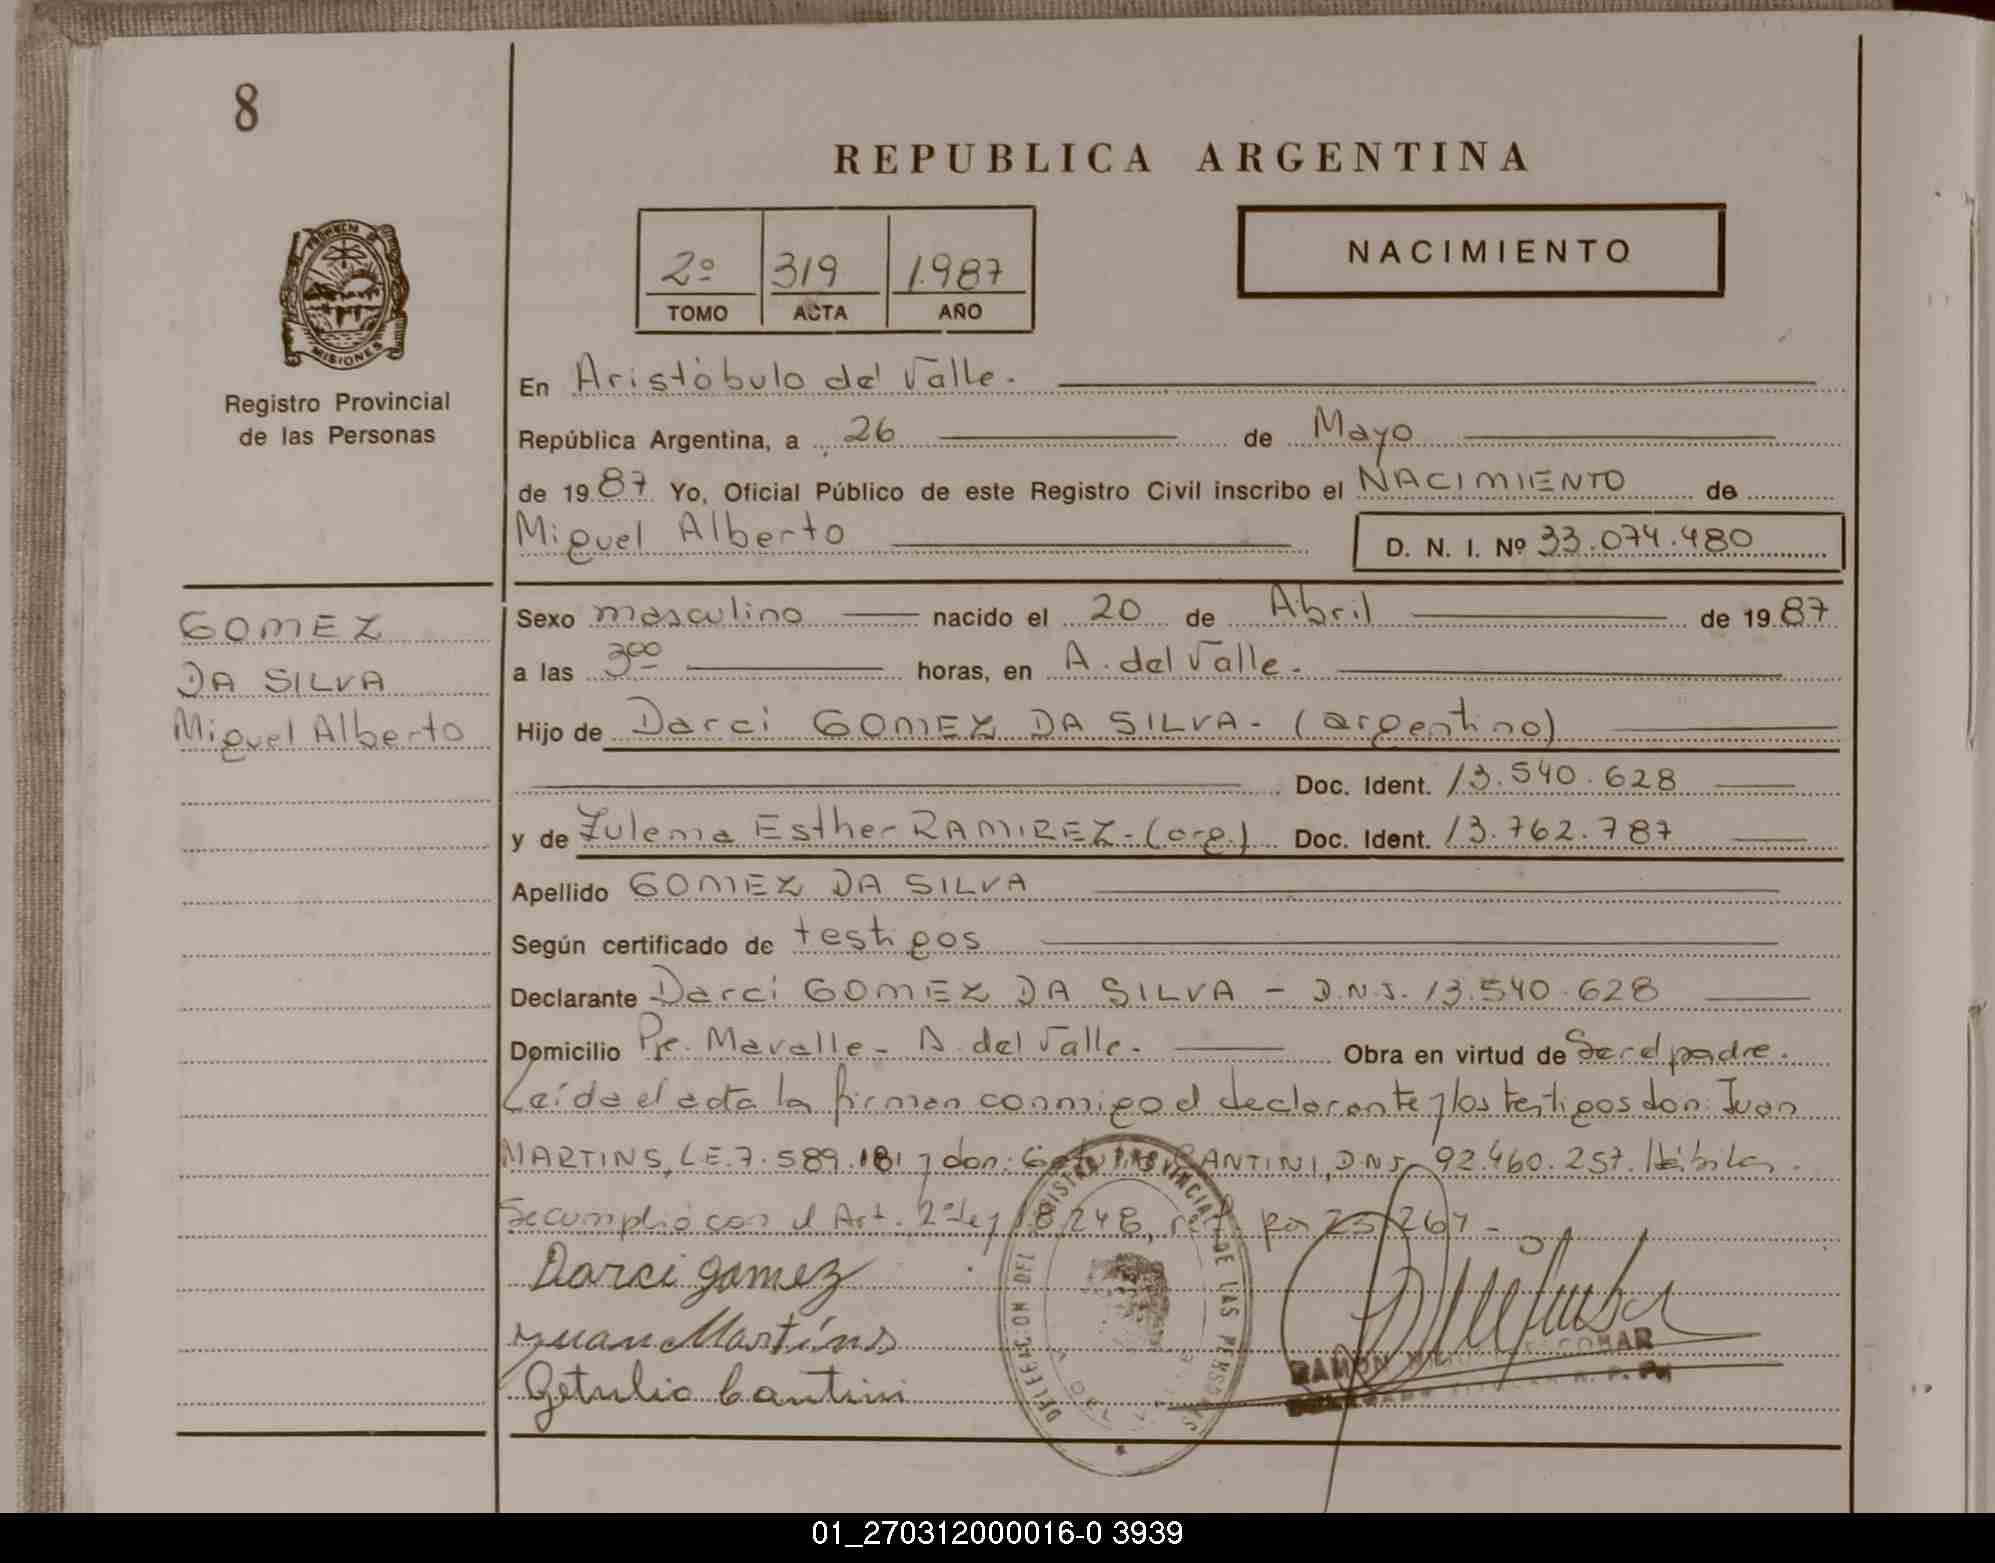 8
REPUBLICA ARGENTINA
2º 319 1.987
TOMO ACTA AÑO
NACIMIENTO
PROVINCIA DE
MISIONES
Registro Provincial
de las Personas
En Aristóbulo del Valle.-
República Argentina, a 26 de Mayo
de 19 87 Yo, Oficial Público de este Registro Civil inscribo el NACIMIENTO de
Miguel Alberto D. N. I. Nº 33.074.480
GOMEZ
DA SILVA
Miguel Alberto
Sexo masculino nacido el 20 de Abril de 19 87
a las 3ºº horas, en A. del Valle.-
Hijo de Darci GOMEZ DA SILVA - (argentino)
Doc. Ident. 13.540.628
y de Zulema Esther RAMIREZ - (arg.) Doc. Ident. 13.762.787
Apellido GOMEZ DA SILVA
Según certificado de testigos
Declarante Darci GOMEZ DA SILVA - D.N.I. 13.540.628
Domicilio Pje. Mavalle - A. del Valle. Obra en virtud de Ser el padre.
Leída el acta la firman conmigo el declarante y los testigos don: Juan
MARTINS, L.E. 7.589.181 y don: Getulio CANTINI, D.N.I. 92.460.257. Hábiles.
Se cumplió con el Art. 2º Ley 18.248, por 23.264 -
Darci gomez
Juan Martíns
Getulio Cantini
DELEGACION DEL REGISTRO PROVINCIAL DE LAS PERSONAS
RAMON
01_270312000016-0 3939